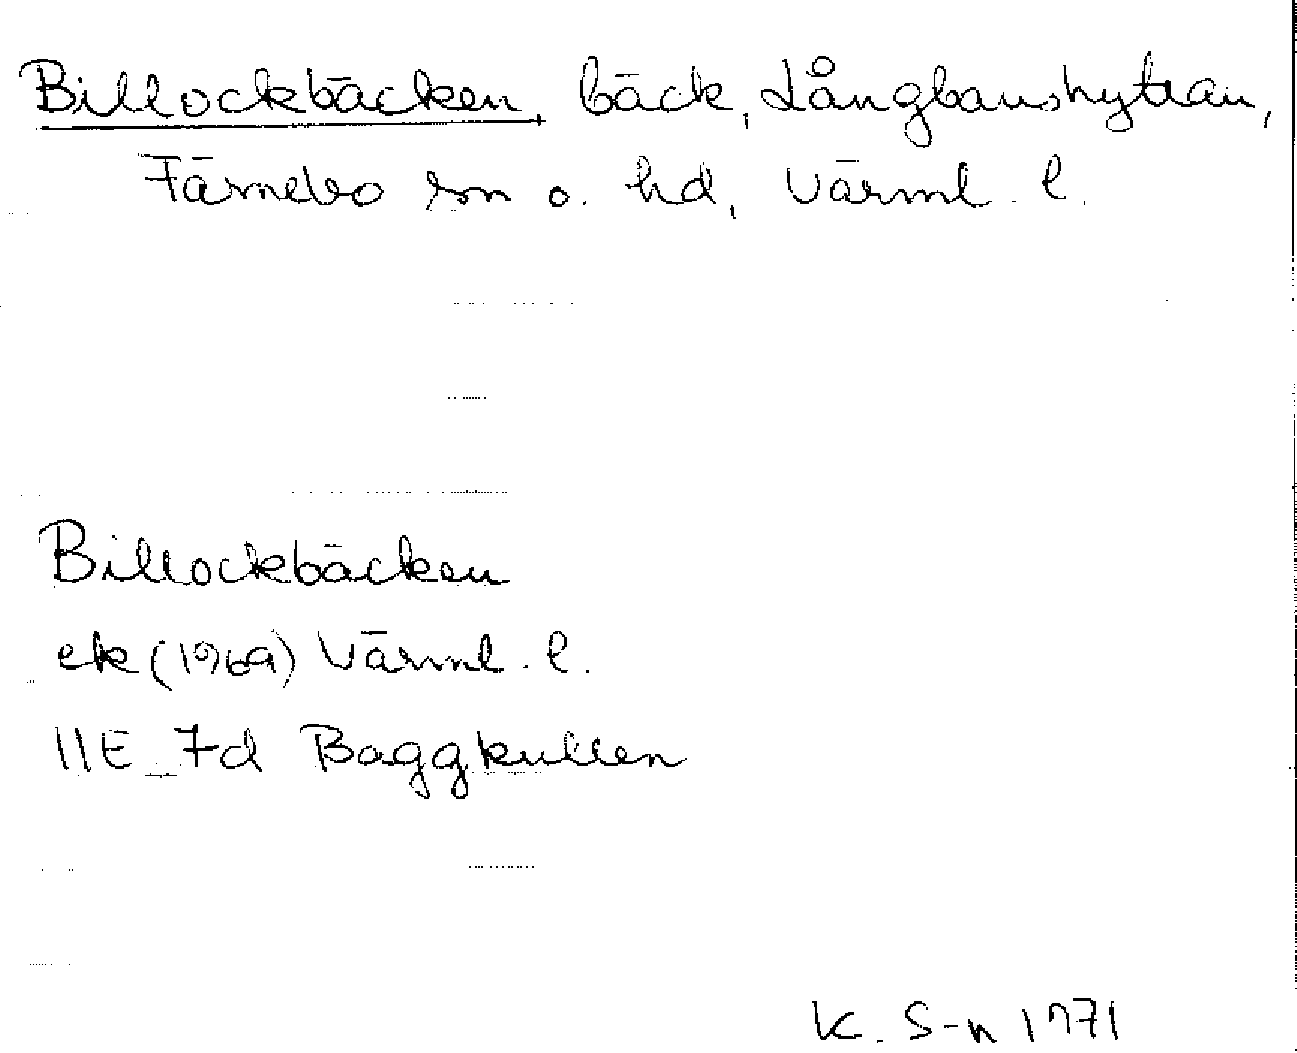 Billockbäcken, bäck, Långbanshyttan,
Färnebo sn o. hd, Värml. l.
Billockbäcken
ek (1969) Värml. l.
11E 7d Baggkullen
K. S-n 1971